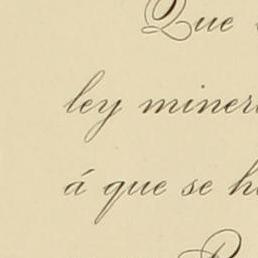 Que
ley miner
á que se h
P